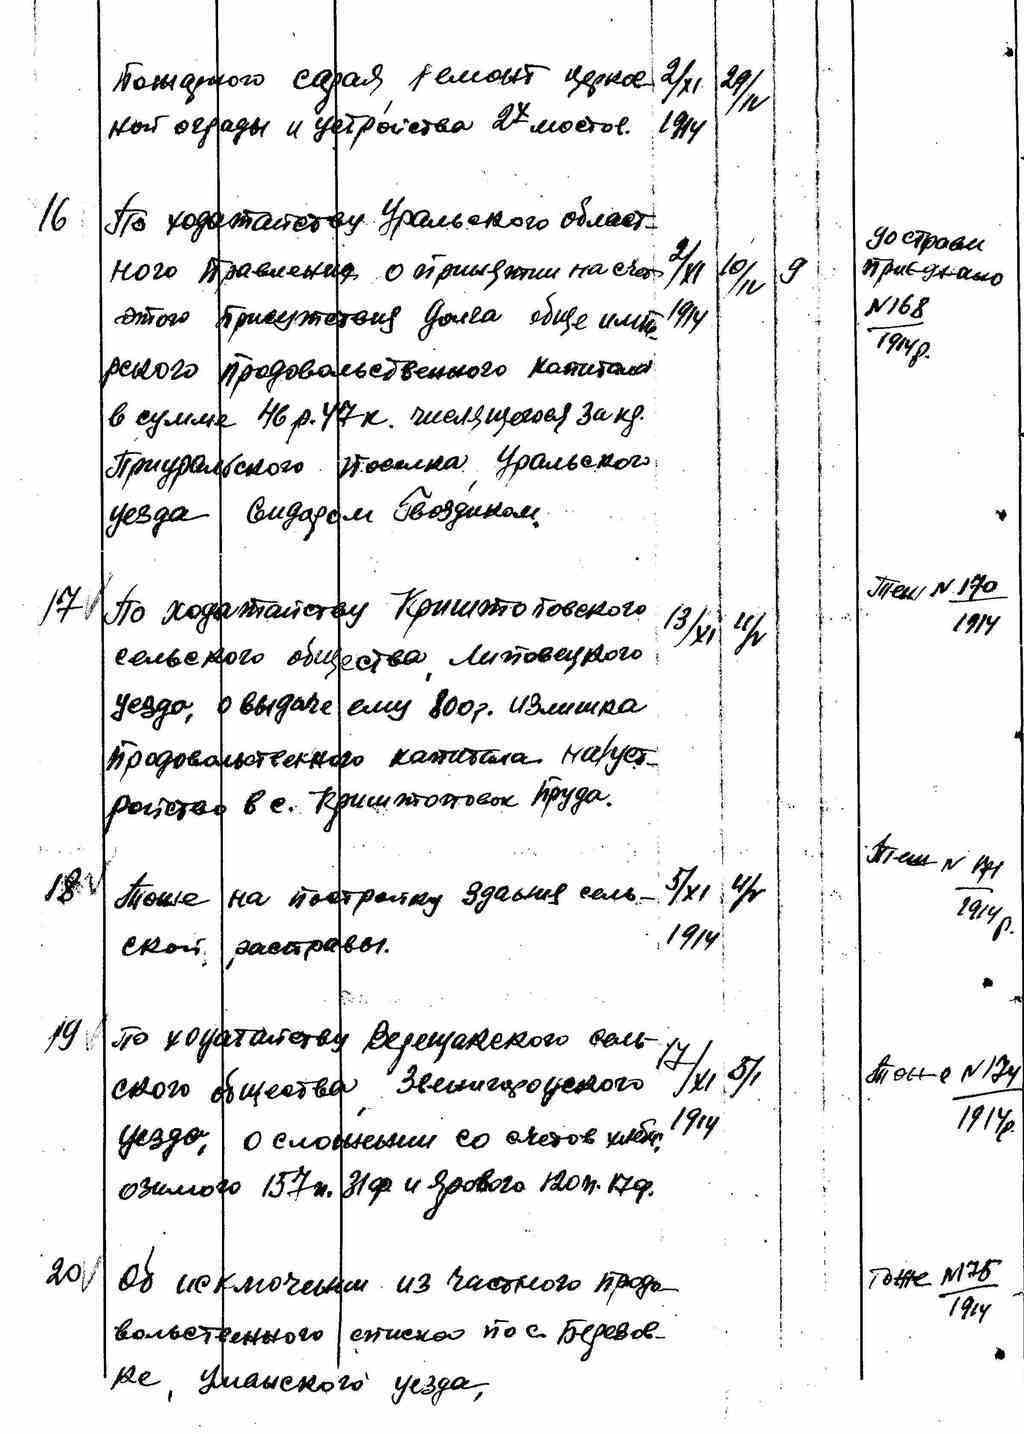 пожарного сарая ремонт церков- 2/XI 29/IV
ной ограды и устройства 2х мостов. 1914
16 По ходатайству Уральского област-
ного Правления о принятии на счет 2/XI 10/IV 9
этого присутствия долга обще импе- 1914
рского продовольственного капитала
в сумме 46 р. 47 к. числящегося за кр.
Приуральского поселка, Уральского
уезда Сидором Гвоздиком.
до справи
приєднано
N 168
1914 р.
17 По ходатайству Криштоповского
сельского общества, Липовецкого 13/XI 4/V
уезда, о выдаче ему 800 р. излишка
продовольственного капитала на уст-
ройство в с. Криштоповке пруда.
Теж N 170
1914
18 Тоже на постройку здания сель- 5/XI 4/V
ской расправы. 1914
Теж N 171
1914 р.
19 По ходатайству Верещакского сель-
ского общества, Звенигородского 17/XI 5/I
уезда, о сложении со счетов хлеба, 1914
озимого 157 п. 31 ф. и ярового 120 п. 17 ф.
Тоже N 174
1914 р.
20 Об исключении из частного продо-
вольственного списка по с. Березов-
ке, Уманского уезда,
Тоже N 175
1914